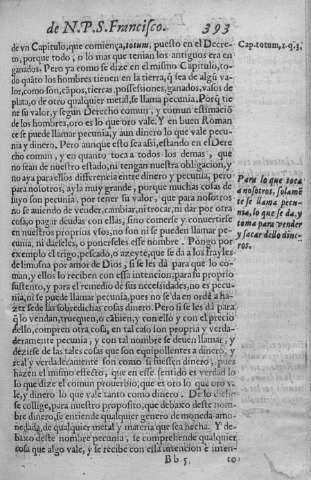 de N.P.S. Francisco. 393
de vn Capitulo, que comiença, totum, puesto en el Decre-
to, porque todo, o lo mas que tenian los antiguos era en
ganados. Pero ya como se dize en el mismo Capitulo, to-
do quãto los hombres tienen en la tierra, q̃ sea de algũ va-
lor, como son, cãpos, tierras, possessiones, ganados, vasos de
plata, o de otro qualquier metal, se llama pecunia. Porq̃ tie
ne su valor, y segun Derecho comun, y comun estimació
de los hombres, oro es lo que oro vale. Y en buen Roman
ce se puede llamar pecunia, y aun dinero lo que vale pecu-
nia y dinero. Pero aunque esto sea assi, estando en el Dere
cho comun, y en quanto toca a todos los demas, que
no sean de nuestro estado, ni tengan nuestra obligacion, y
no aya para ellos diferencia entre dinero y pecunia; pero
para nosotros, ayla muy grande, porque muchas cosas de
suyo son pecunia, por tener su valor, que para nosotros
no se auiendo de vender, cambiar, ni trocar, ni dar por otra
cosa, o pagar deudas con ellas, sino comerse y conuertirse
en nuestros proprios vsos, no son ni se pueden llamar pe-
cunia, ni darseles, o ponerseles esse nombre. Pongo por
exemplo el trigo, pescado, o azeyte, que se dà a los frayles
de limosna por amor de Dios, si se les dà para que lo co-
man, y ellos lo reciben con essa intencion, para su proprio
sustento, y para el remedio de sus necessidades, no es pecu-
nia, ni se puede llamar pecunia, pues no se da en ordẽ a ha-
zer se de las sobredichas cosas dinero. Pero si se les dà para
q̃ lo vendan, truequen, o cãbien, y con ello y con el precio
dello, compren otra cosa, en tal caso son propria y verda-
deramente pecunia, y con tal nombre se deuen llamar, y
dezirse de las tales cosas que son equipollentes a dinero, y
real y verdaderamente son como si fuessen dinero, pues
hazen el mismo efecto, que en esse sentido es verdad lo
lo que dize el comun prouerbio, que es oro lo que oro va-
le, y dinero lo que vale tanto como dinero. De lo dicho
se collige, para nuestro proposito, que debaxo deste nom-
bre dinero, se entiende qualquier genero de moneda amo-
nedada, de qualquier metal y materia que sea hecha. Y de-
baxo deste nombre pecunia, se comprehende qualquier
cosa que algo vale, y se recibe con essa intencion e inten-
Bb 5 to
Cap. totum, 1. q. 3.
Para lo que toca
a nosotros, solamẽ
te se llama pecu-
nia, lo que se da, y
toma para vender
y sacar dello dine
ros.